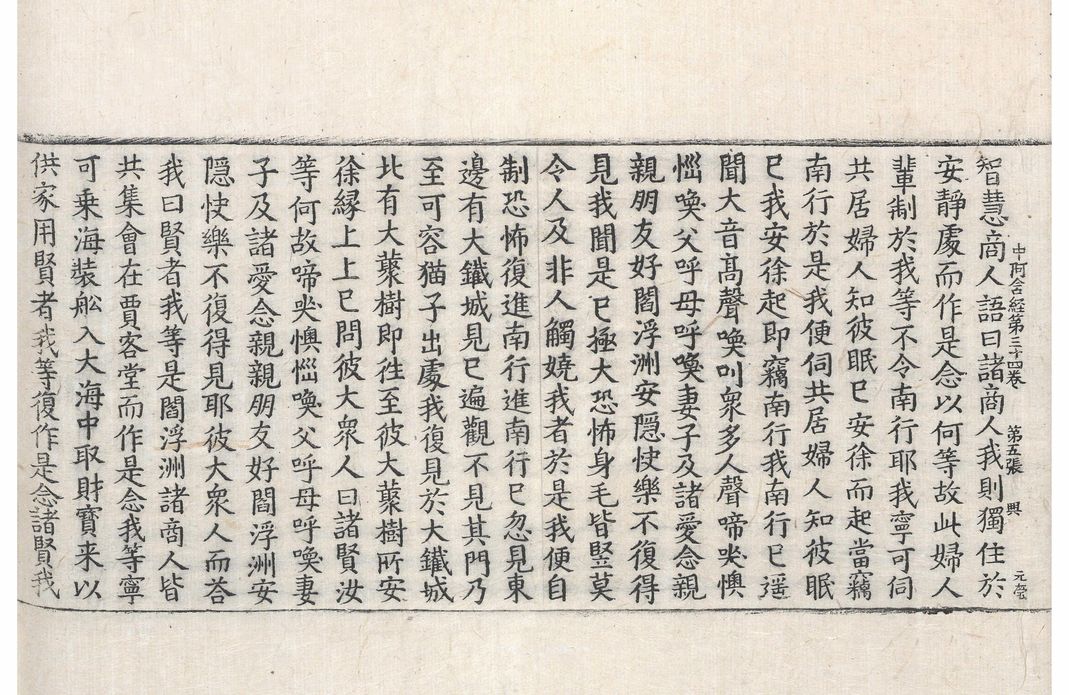 中阿含経第三十四卷 第五張 興 元瑩
智慧商人語曰諸商人我則獨住於
安靜處而作是念以何等故此婦人
輩制於我等不令南行耶我寧可伺
共居婦人知彼眠已安徐而起當竊
南行於是我便伺共居婦人知彼眠
已我安徐起即竊南行我南行已遥
聞大音髙聲喚叫衆多人聲啼哭懊
惱喚父呼母呼喚妻子及諸愛念親
親朋友好閻浮洲安隱快樂不復得
見我聞是已極大恐怖身毛皆竪莫
令人及非人觸嬈我者於是我便自
制恐怖復進南行進南行已忽見東
邊有大鐵城見已遍觀不見其門乃
至可容猫子出處我復見於大鐵城
北有大藂樹即徃至彼大藂樹所安
徐縁上上已問彼大衆人曰諸賢汝
等何故啼哭懊惱喚父呼母呼喚妻
子及諸愛念親親朋友好閻浮洲安
隱快樂不復得見耶彼大衆人而荅
我曰賢者我等是閻浮洲諸商人皆
共集會在賈客堂而作是念我等寧
可乗海装舩入大海中取財寳来以
供家用賢者我等復作是念諸賢我